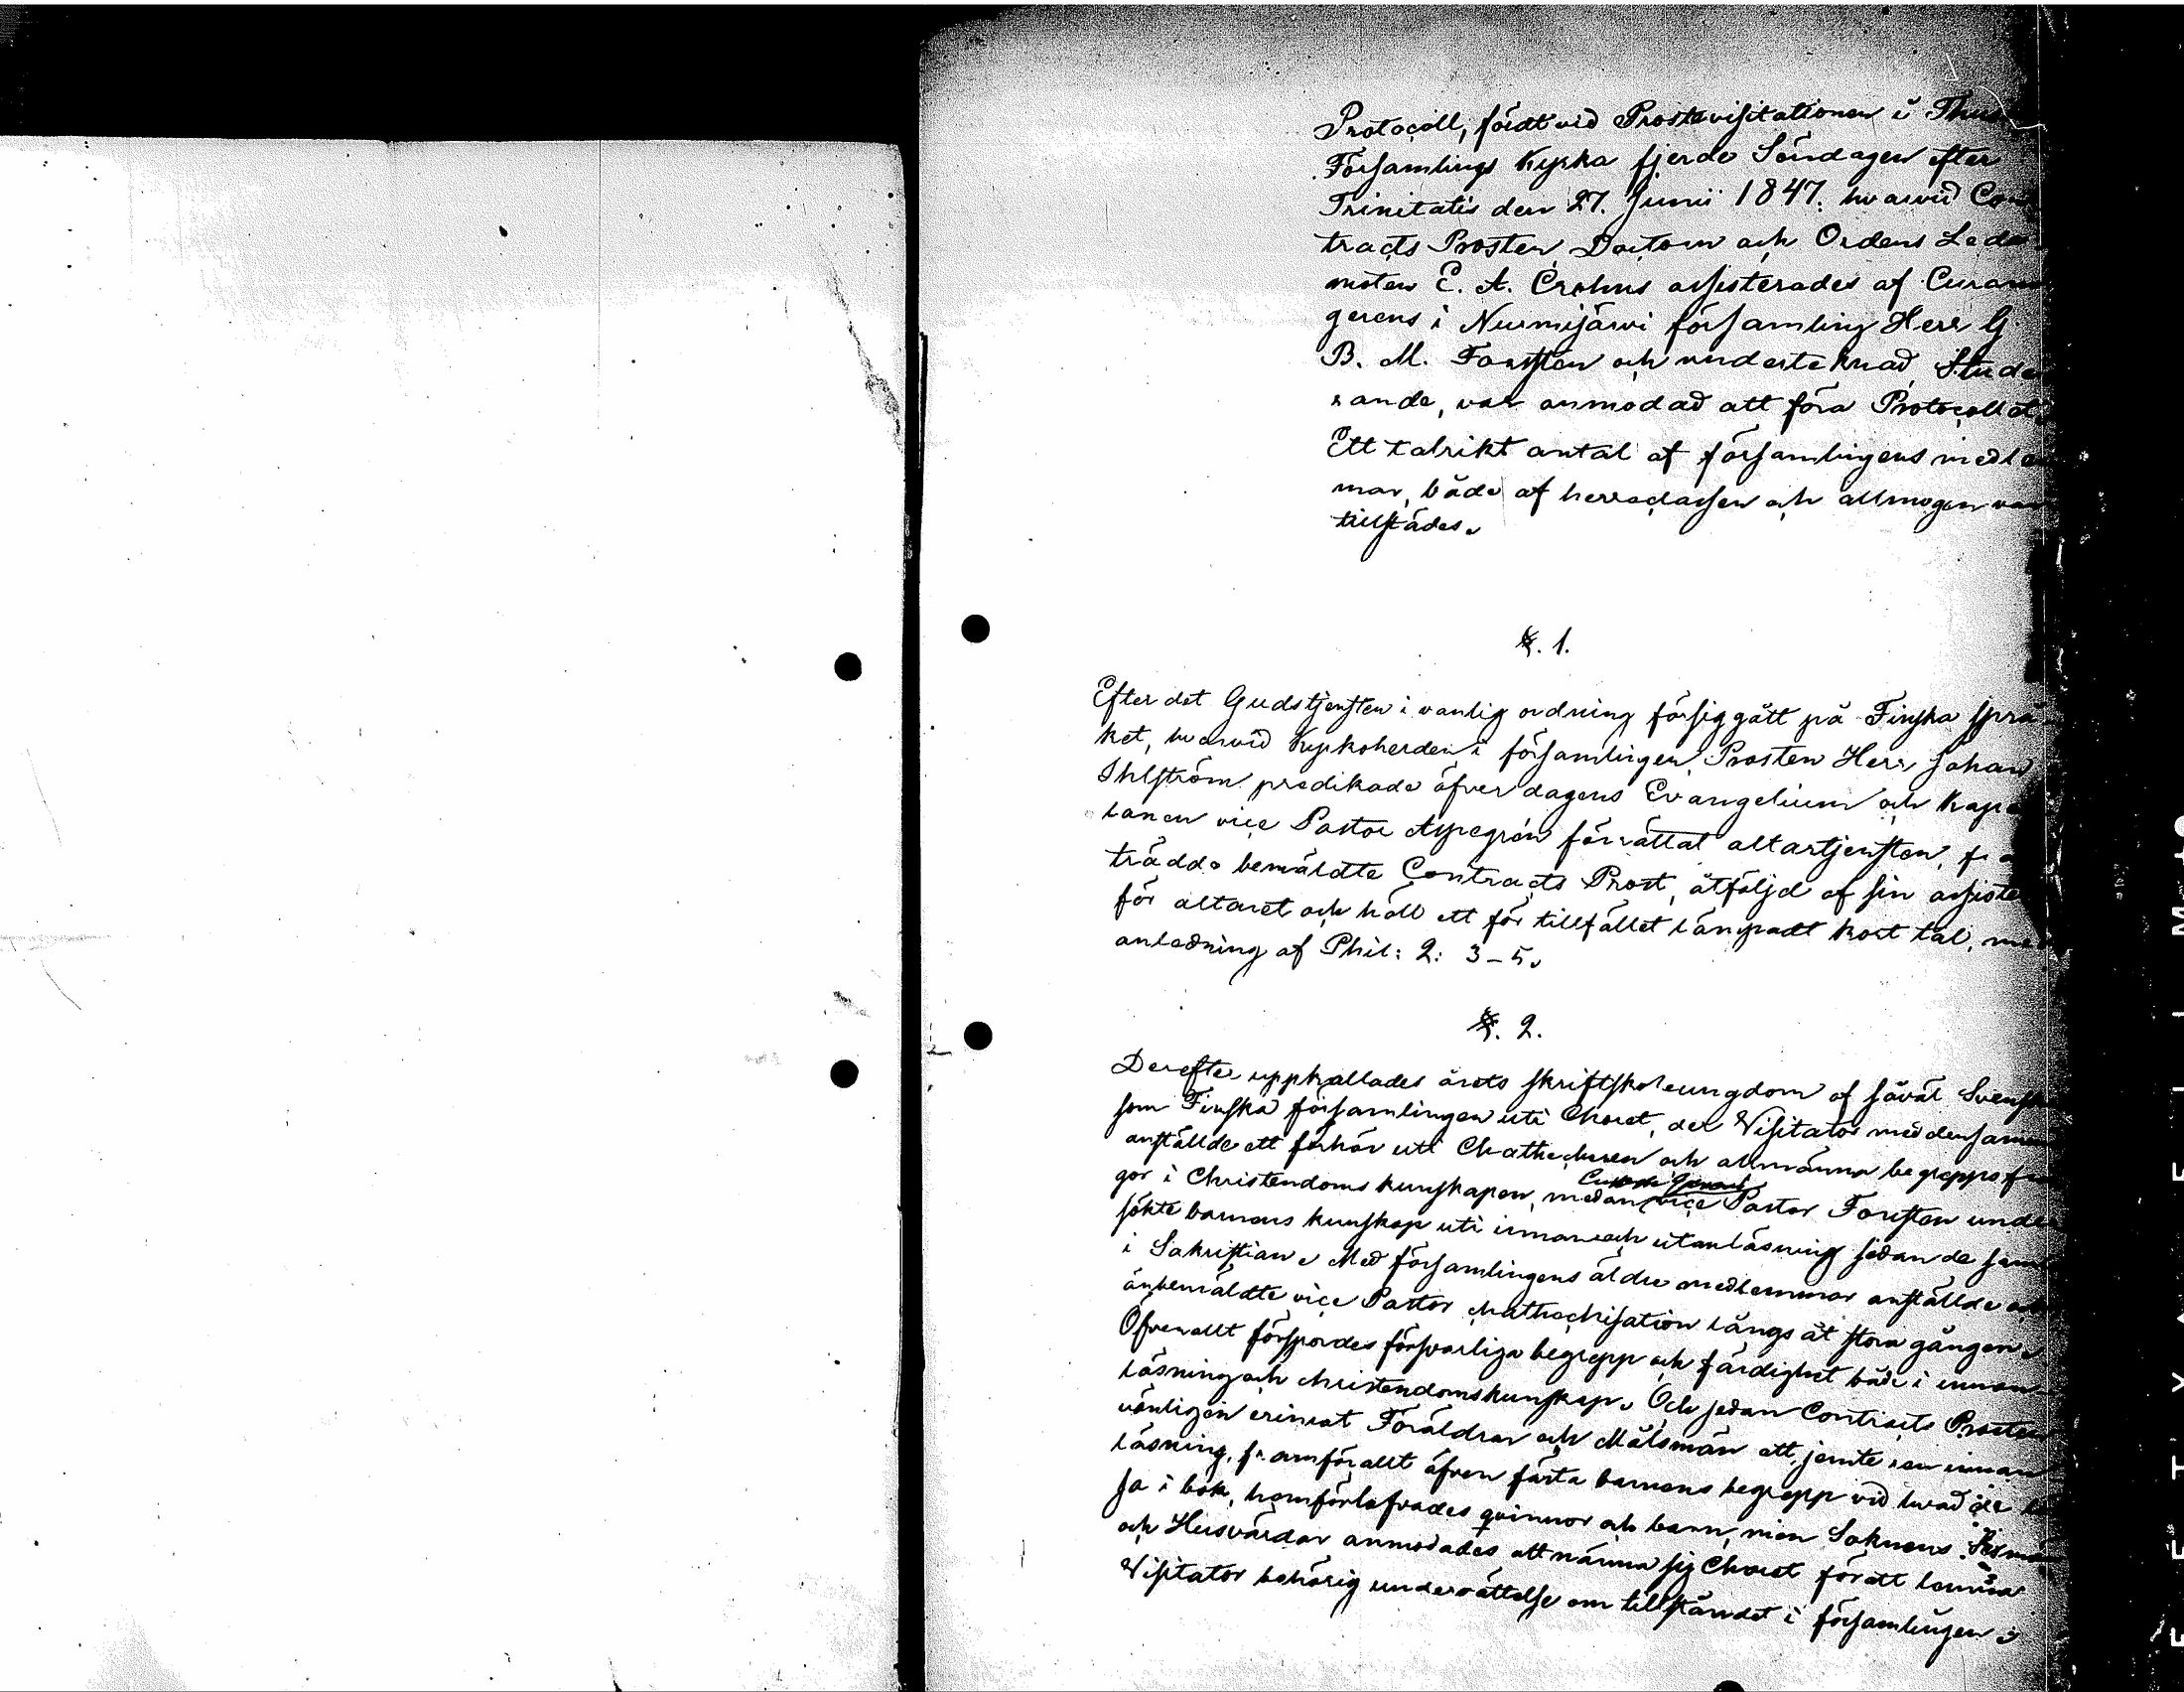 Protocoll, fördt vid Prostevisitationen i Thus
Församlings Kyrka fjerde Söndagen efter
Trinitatis den 27. Junii 1847. hvarvid Con
tracts Prosten, Doctorn och Ordens Leda
moten E. A. Crohns assisterades af Curam
gerens i Nurmijärvi församling Herr G.
B. M. Forsten och undertecknad Stude
rande, var anmodad att föra Protocollet.
Ett talrikt antal af församlingens medlem
mar, både af herreclassen och allmogen var
tillstädes.
§. 1.
Efter det Gudstjensten i vanlig ordning försiggått på Finska språ
ket, hvarvid Kyrkoherden i församlingen, Prosten Herr Johan
Ihlström predikade öfver dagens Evangelium och Kape
lanen vice Pastor Aspegrén förrättat altartjensten, fra
trädde bemäldte Contracts Prost, åtföljd af sin assiste
för altaret och höll ett för tillfället lämpadt kort tal, med
anledning af Phil: 2: 3-5.
§. 2.
Derefter uppkallades årets skriftskoleungdom af såväl Svenska
som Finska församlingen uti Choret, der Visitator med densamma
anställde ett förhör uti Chathechesen och allmänna begreppsfrå
gor i Christendoms kunskapen, medan vice Pastor Forsten under
sökte barnens kunskap uti innan och utanläsning sedan de sam
i Sakristian. Med församlingens äldre medlemmar anställde
änbemäldte vice Pastor chathechisation längs åt stora gången.
Öfverallt förspordes försvarliga begrepp och färdighet både i innan
läsning och christendomskunskap. Och sedan Contracts Prosten
vänligen erinrat Föräldrar och Målsmän att, jemte ren innan
läsning, framförallt äfven fästa barnens begrepp vid hvad de lä
sa i bok, hemförlofvades qvinnor och barn, men Soknens Sexmän
och Husvärdar anmodades att närma sig Choret för att lemna
Visitator behörig underrättelse om tillståndet i församlingen.